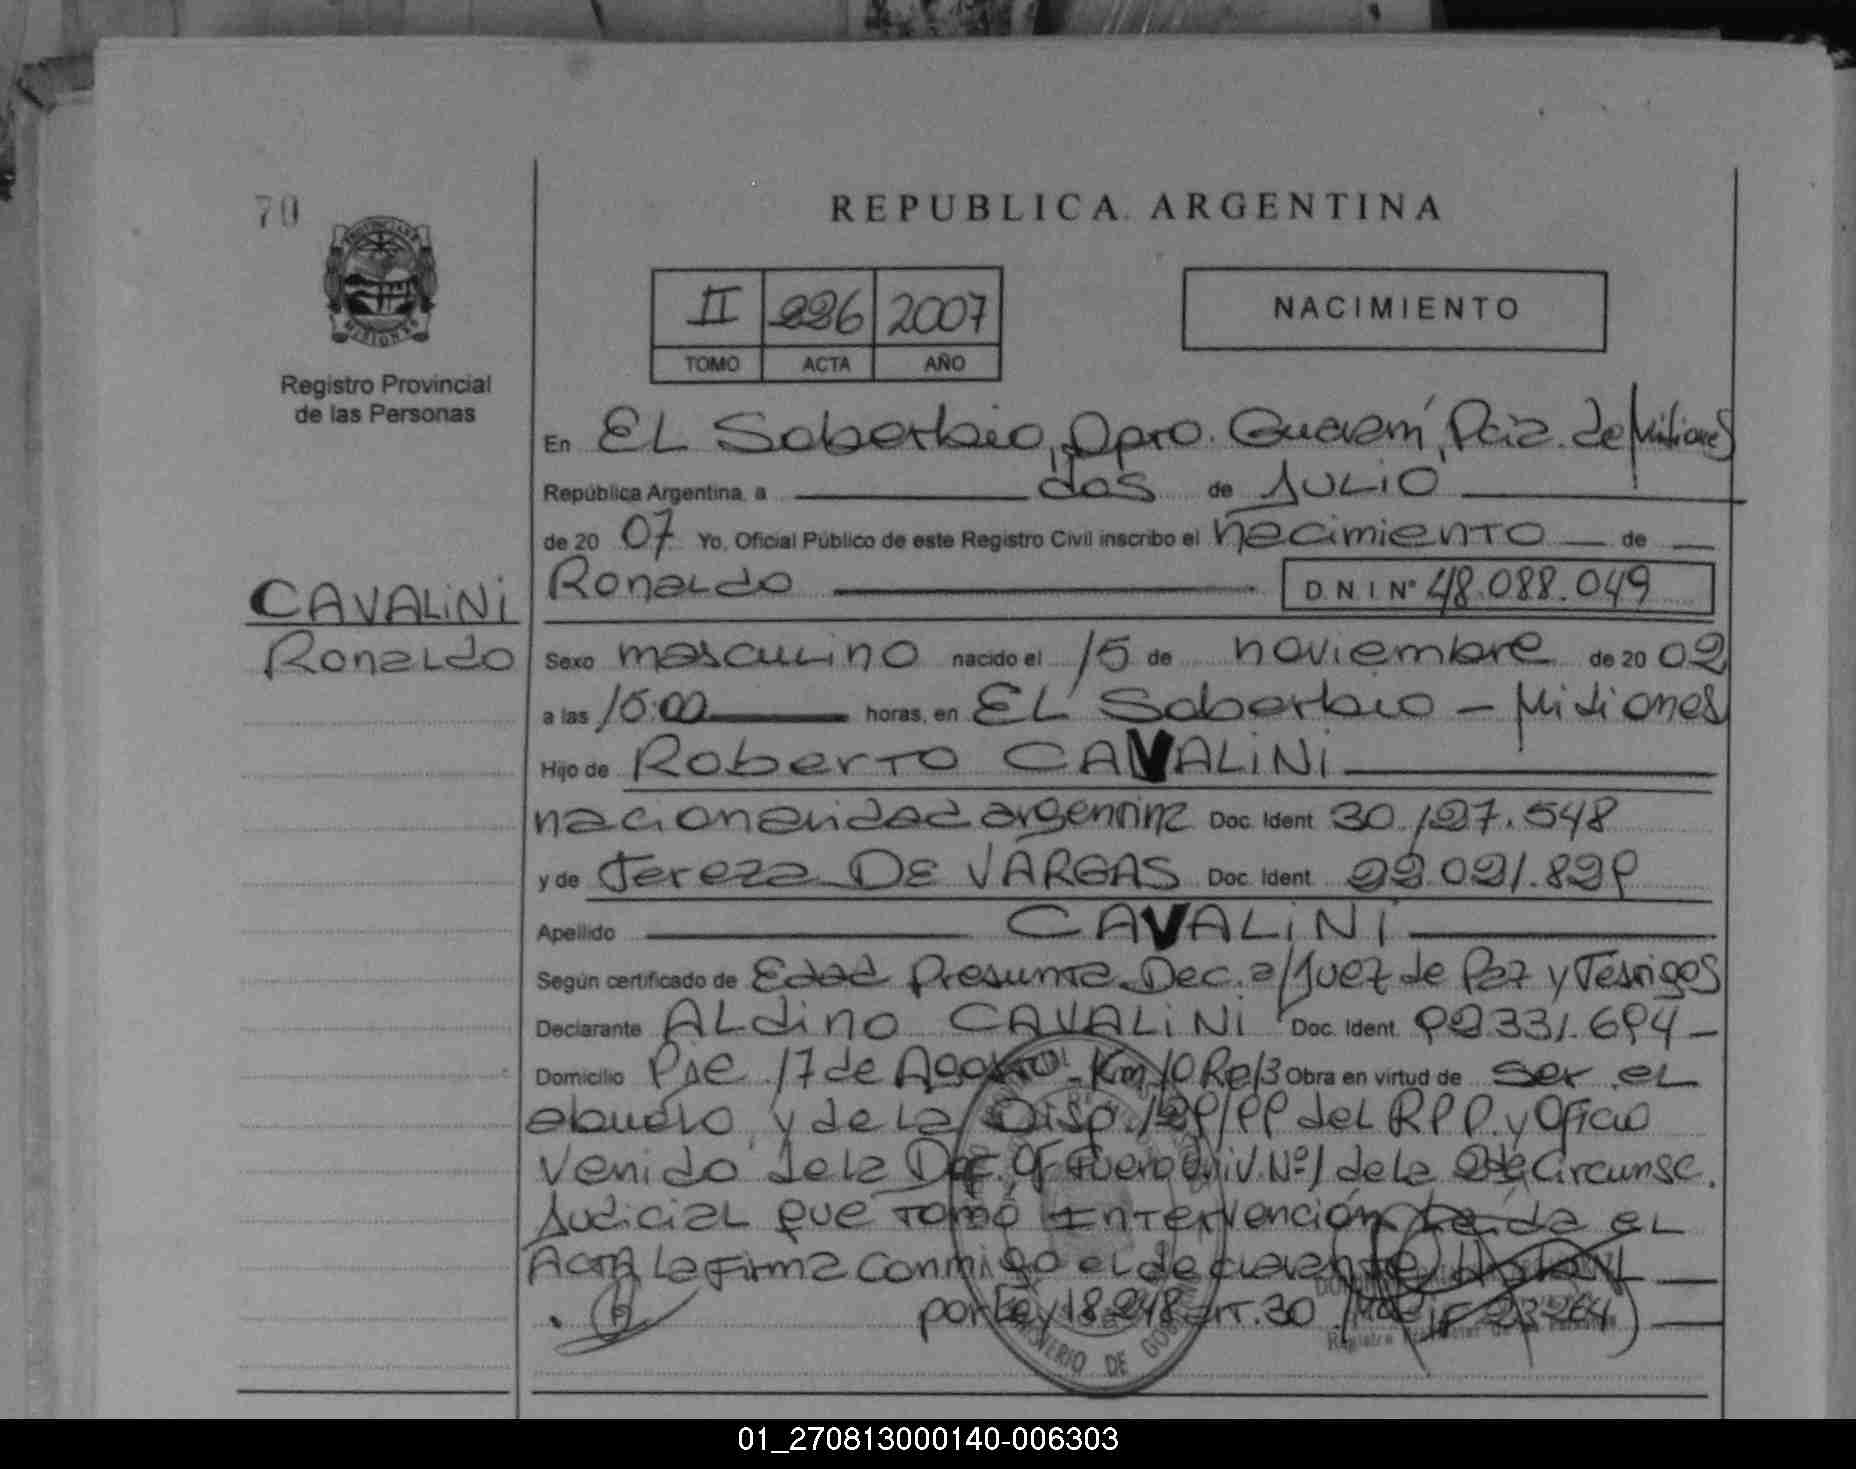 70
REPUBLICA ARGENTINA
II 226 2007
TOMO ACTA AÑO
NACIMIENTO
Registro Provincial
de las Personas
En EL Soberbio, Dpto. Guaraní, Pcia. de Misiones
República Argentina, a dos de JULIO
de 2007 Yo, Oficial Público de este Registro Civil inscribo el nacimiento de
CAVALINI
Ronaldo
Ronaldo D.N.I. Nº 48.088.049
Sexo masculino nacido el 15 de noviembre de 2002
a las 15:00 horas, en EL Soberbio - Misiones
Hijo de Roberto CAVALINI
nacionalidad argentina Doc. Ident. 30.127.548
y de Tereza DE VARGAS Doc. Ident. 22.021.829
Apellido CAVALINI
Según certificado de Edad Presunta Dec. a/Juez de Paz y Testigos
Declarante ALdino CAVALINI Doc. Ident. 92331.694-
Domicilio Pje 17 de Agosto - Km 10 Obra en virtud de ser el
abuelo y de la Disp. 129/99 del R P P. y Oficio
Venido de la Def. Of Fuero Univ. Nº1 de la 2da Circunsc.
Judicial que tomó Intervención Leída el
ACTA La Firma Conmigo el declarante
por Ley 18248 art. 30 (Modif 23264)
MINISTERIO DE GOB
01_270813000140-006303